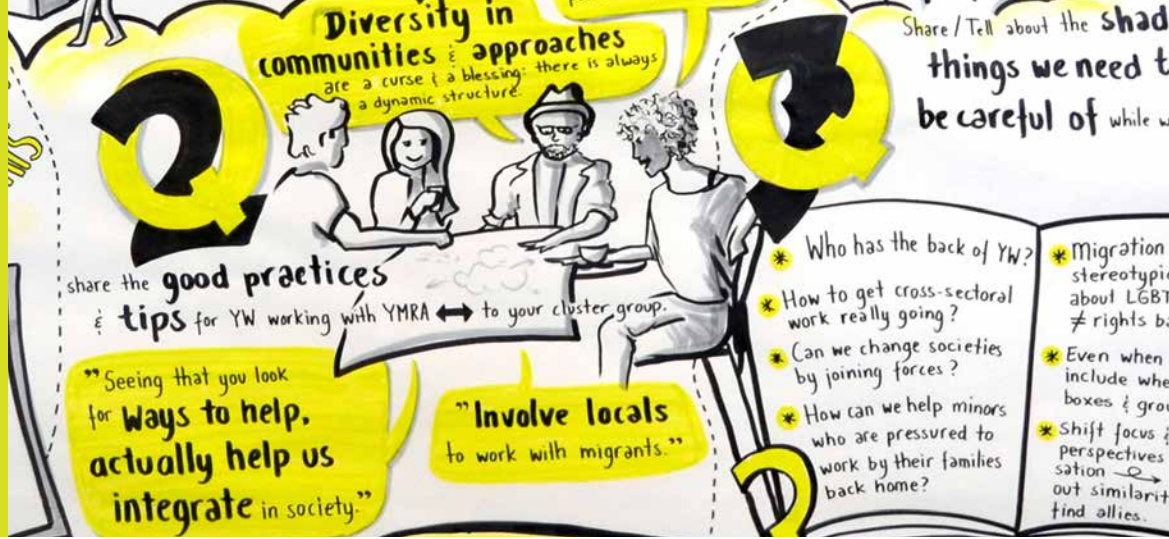 Diversity in
communities & approaches
are a curse & a blessing: there is always
a dynamic structure.
Q
2
share the good practices
& tips for YW working with YMRA ↔ to your cluster group.
"Seeing that you look
for ways to help,
actually help us
integrate in society."
"Involve locals
to work with migrants."
Q
3
Share/Tell about the shad
things we need t
be careful of while w
* Who has the back of YW?
* How to get cross-sectoral
work really going?
* Can we change societies
by joining forces?
* How can we help minors
who are pressured to
work by their families
back home?
* Migration
stereotypi
about LGBT
≠ rights b
* Even when
include whe
boxes & gro
* Shift focus
perspectives
sation
out similarit
find allies.